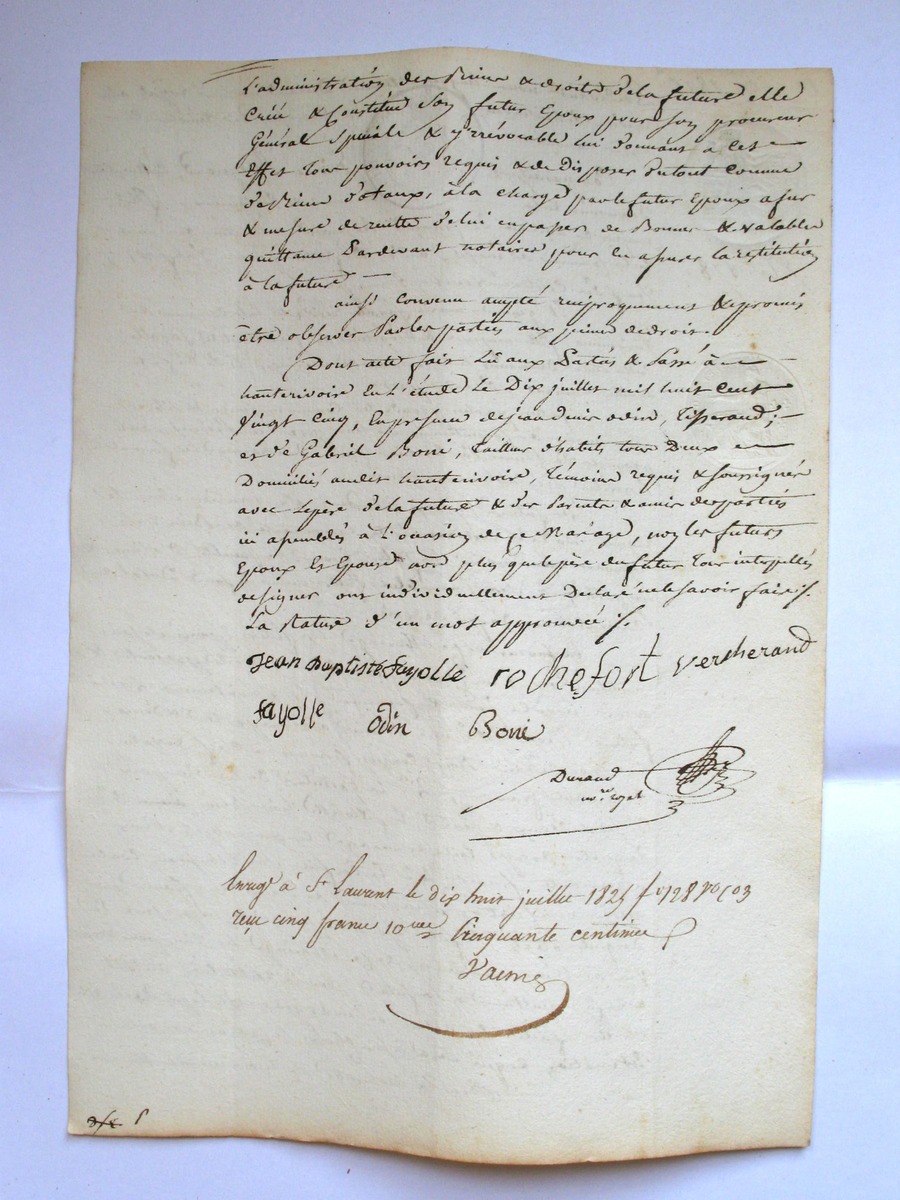 L'administration des Biens & droits de la future elle
Créé & Constitue son futur Epoux pour son procureur
Général Spéciale & yrrévocable lui donnant à cet
Effet tous pouvoirs requis & de Disposer du tout Comme
de Biens dotaux, à la charge par le futur Epoux a fur
& mesure de recette de lui en passer de Bonnes & valables
quittance Pardevant notaires pour en assurer la restitution
à la future
ainsi Convenu accepté réciproquement & promis
être observer Par les parties aux peines de droit.
Dont acte fait Lû aux Parties & Passé à
hauterivoire En L'étude Le Dix juillet mil huit Cent
Vingt Cinq, En présence de jean denis odin, Tisserand;
et de Gabriel Boni, Tailleur d'habits tous Deux
Domiciliés audit hauterivoire, Témoins requis & soussignés
avec Le père de la future & des Parents & amis des parties
ici assemblés à L'occasion de ce Mariage, non les futurs
Epoux Et Epouse non plus que le père du futur Tous interpellés
de signer ont individuellement Déclaré ne le savoir faire ./.
La rature d'un mot approuvée ./.
Jean Baptiste fayolle rochefort vercherand
fayolle Odin Boni
Durand
nore royal
Enregé à St Laurent le dix huit juillet 1825 fo 128 Vo C 3
reçu cinq francs 10me Cinquante centimes